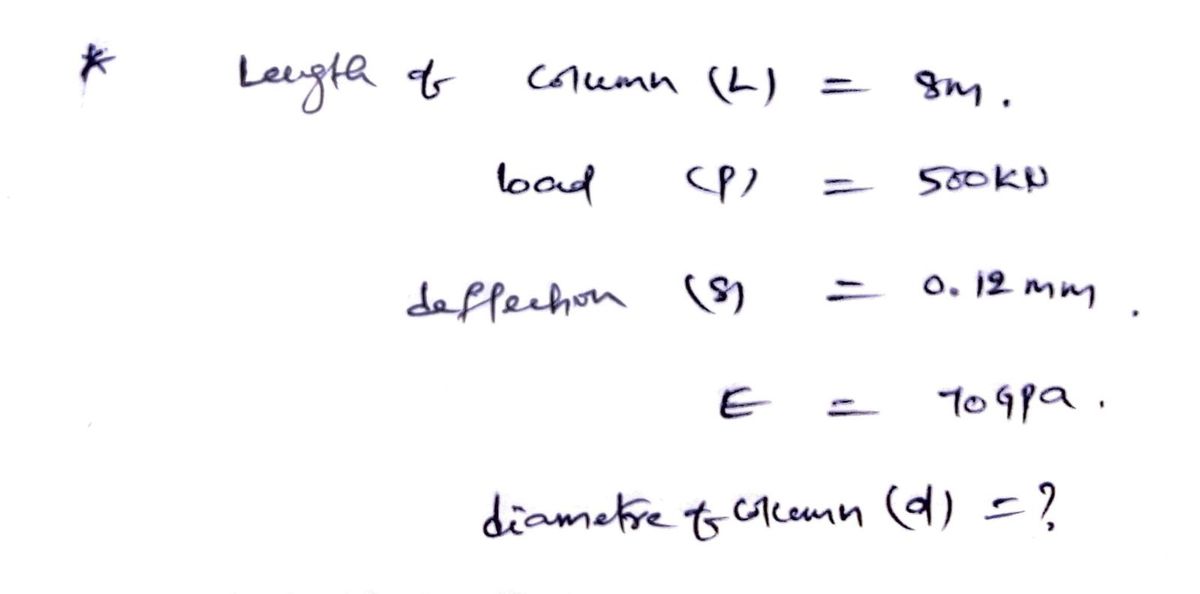 * Length of column (L) = 8m.
load (P) = 500KN
deffection (δ) = 0.12 mm.
E = 70GPa.
diametre of column (d) = ?